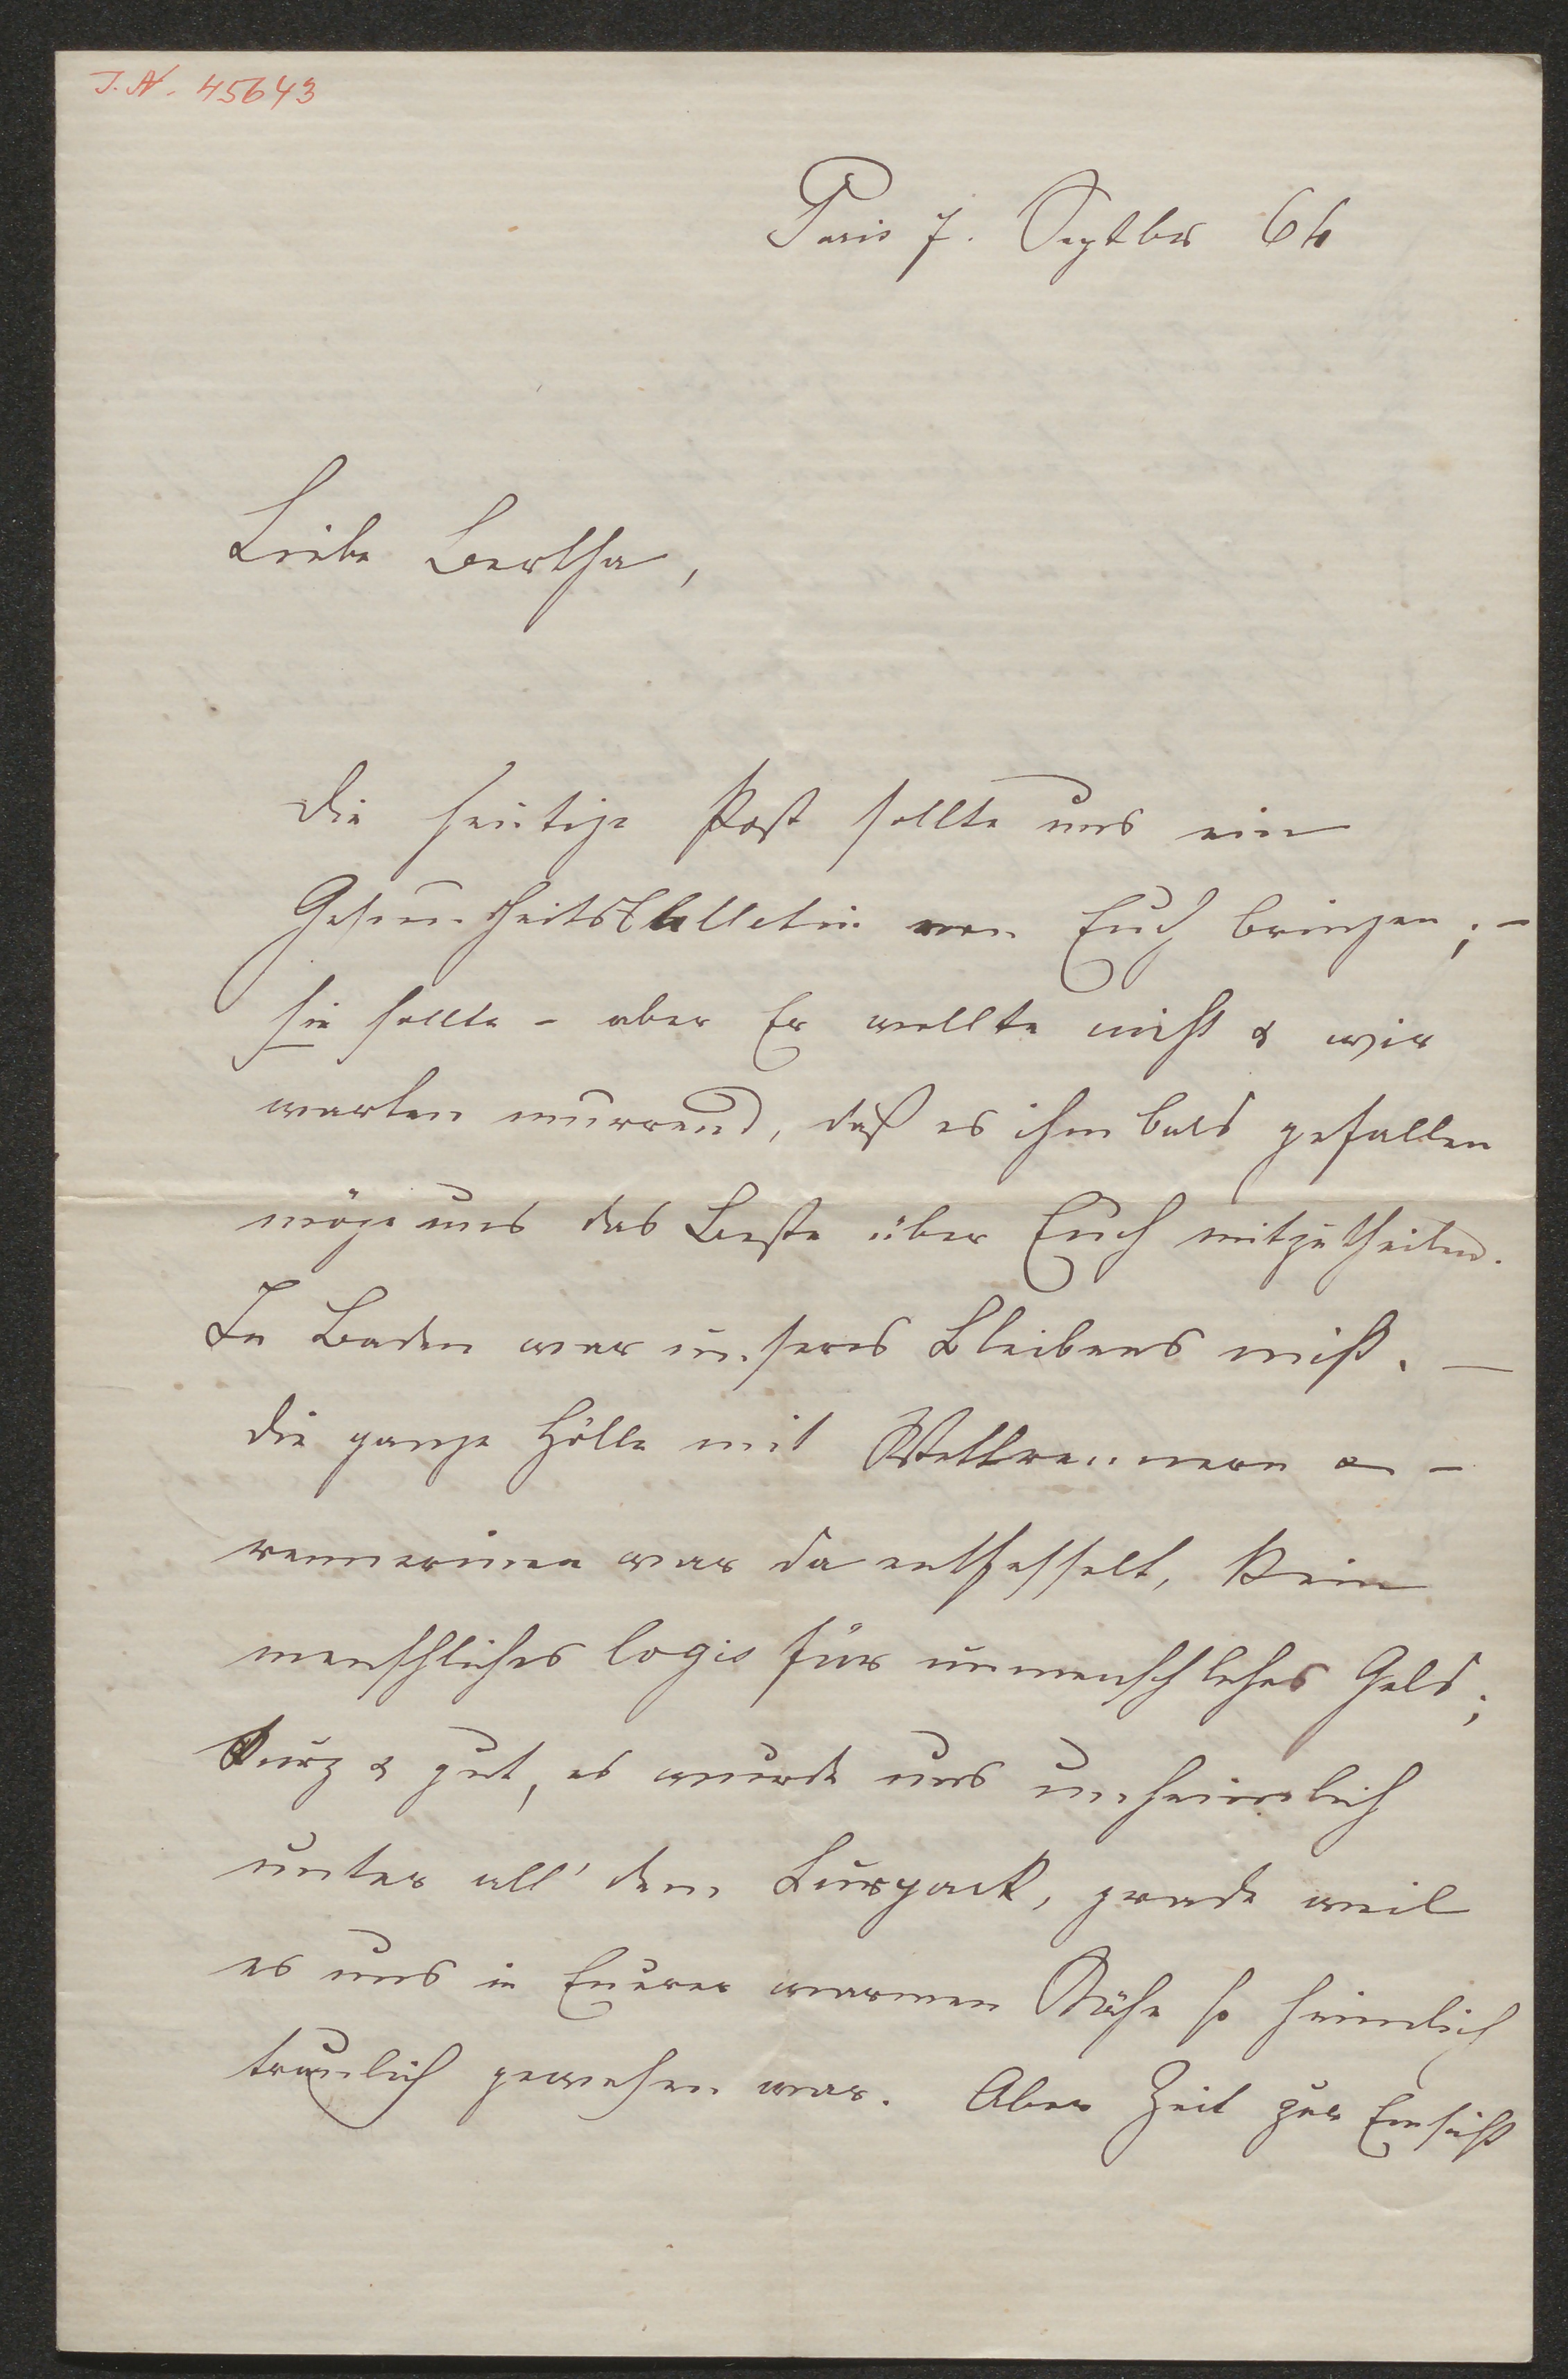 J. N. 45643
Paris 7. Septber 64
Liebe Bertha,
die heutige Post sollte uns ein
Gesundheitsbulletin von Euch bringen; –
sie sollte – aber Er wollte nicht & wir
warten murrend, daß es ihm bald gefallen
möge uns das Beste über Euch mitzutheilen.
In Baden war unseres Bleibens nicht. –
die ganze Hölle mit Wettrennern & –
rennerinen war da entfesselt, kein
menschliches Logis für unmenschliches Geld;
kurz & gut, es wurde uns unheimlich
unter all' dem Curpack, grade weil
es uns in Euerer warmen Nähe so heimlich
traulich gewesen war. Aber Zeit zur Einsicht